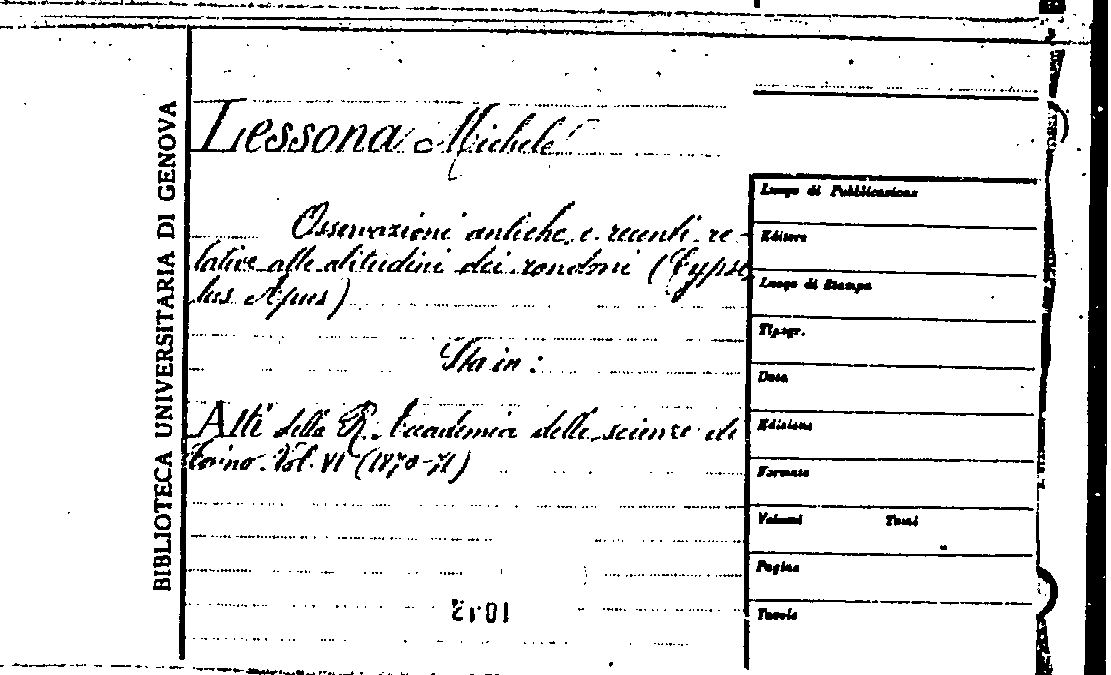 BIBLIOTECA UNIVERSITARIA DI GENOVA
Lessona Michele
Osservazioni antiche e recenti re-
lative alle abitudini dei rondoni (Cypse
lus Apus)
Sta in:
Atti della R. Accademia delle scienze di
Torino. Vol. VI (1870-71)
Luogo di Pubblicazione
Editore
Luogo di Stampa
Tipogr.
Data
Edizione
Formato
Volumi Tomi
Pagine
Tavole